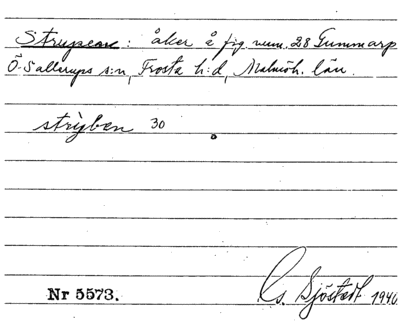 Strupen: åker å fig. num. 28 Gummarp
Ö. Sallerups s:n, Frosta h:d, Malmöh. län.
strỳben 30
Nr 5573.
Gs. Sjöstedt 1946